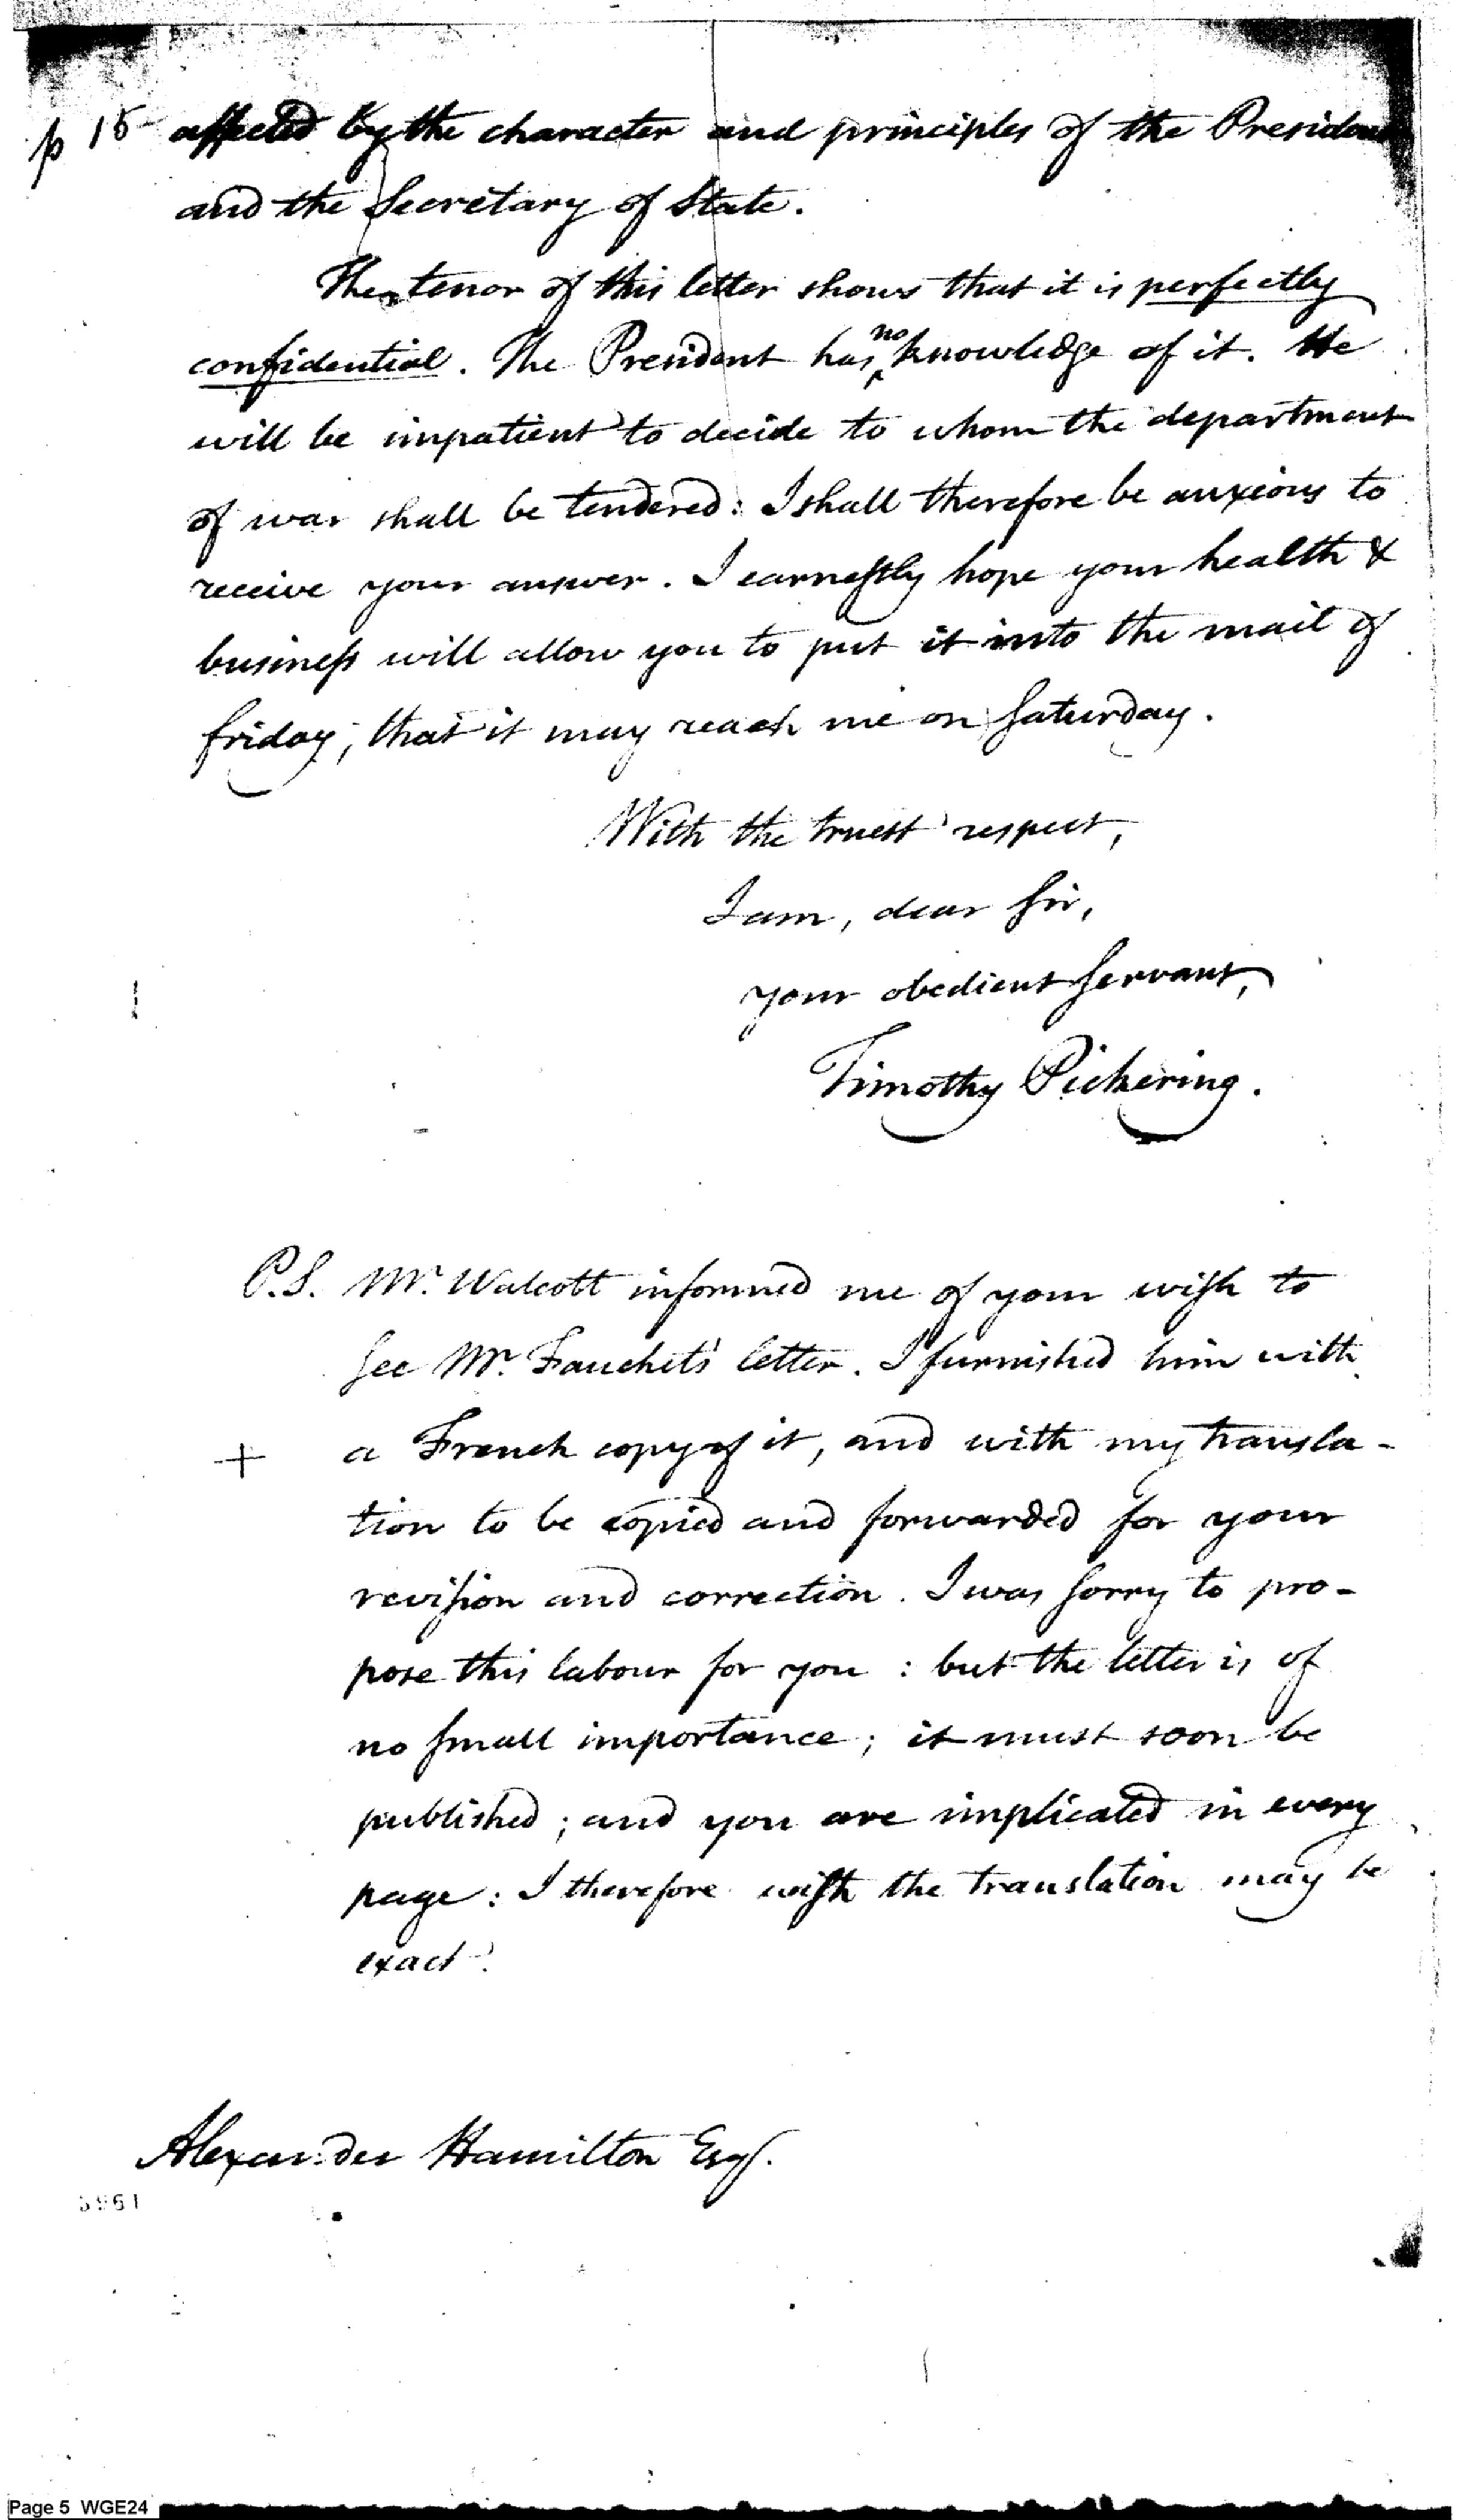 p 15 affected by the character and principles of the President
and the Secretary of State.
The tenor of this letter shows that it is perfectly
confidential. The President has no knowledge of it. He
will be impatient to decide to whom the department
of war shall be tendered: I shall therefore be anxious to
receive your answer. I earnestly hope your health &
business will allow you to put it into the mail of
friday, that it may reach me on Saturday.
With the truest respect,
I am, dear Sir,
your obedient servant,
Timothy Pickering.
P.S. Mr. Wolcott informed me of your wish to
see Mr. Fauchet's letter. I furnished him with
+ a French copy of it, and with my transla-
tion to be copied and forwarded for your
revision and correction. I was sorry to pro-
pose this labour for you: but the letter is of
no small importance; it must soon be
published; and you are implicated in every
page: I therefore wish the translation may be
exact.
Alexander Hamilton Esq.
Page 5 WGE24